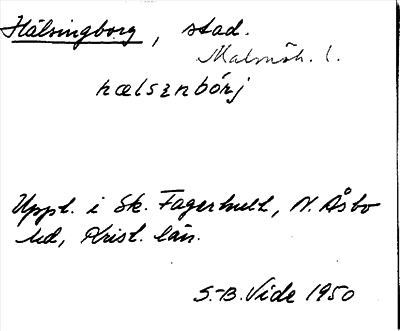 Hälsingborg, stad.
Malmöh. l.
hælsɪnbórj
Uppt. i Sk. Fagerhult, N. Åsbo
hd, Krist. län.
S.-B. Vide 1950